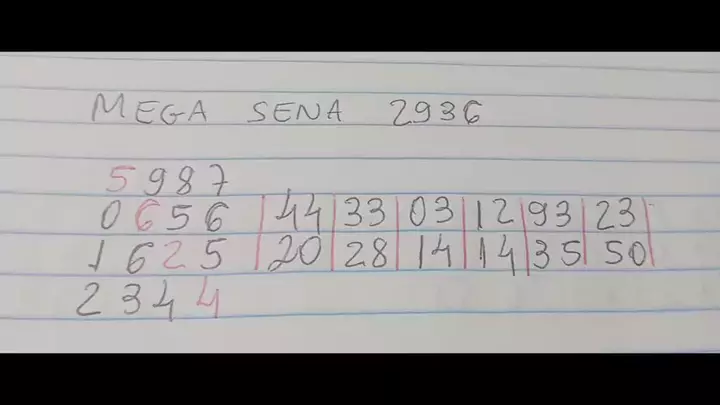 MEGA SENA 2936
5987
0656 44 33 03 12 93 23
1625 20 28 14 14 35 50
2344